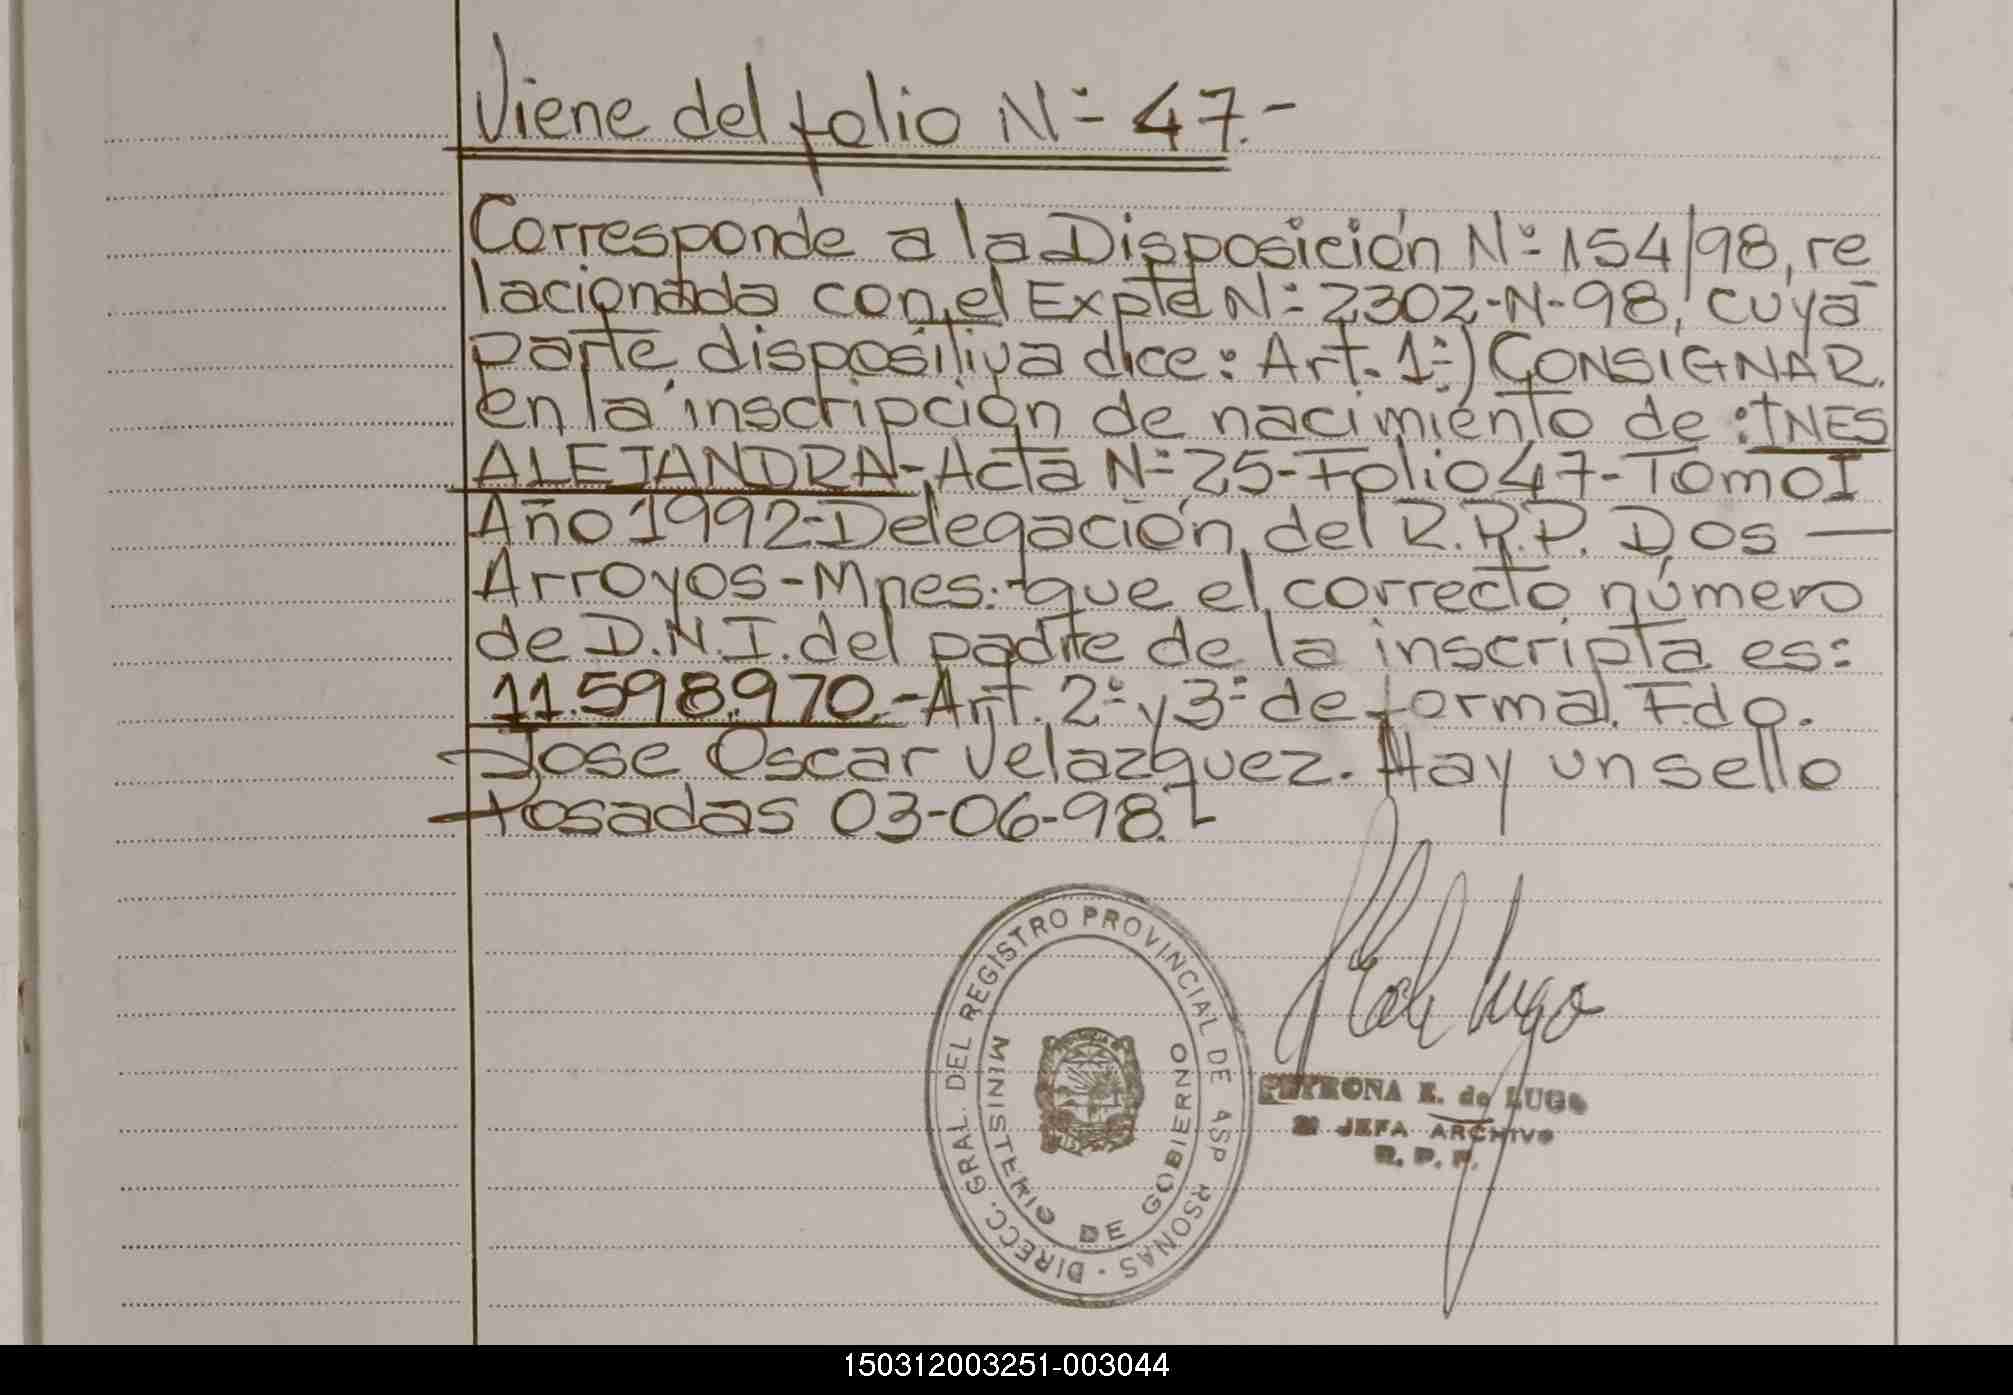 Viene del folio Nº 47.-
Corresponde a la Disposición Nº 154/98, re
lacionada con el Expte Nº 2302-N-98, cuya
parte dispositiva dice: Art. 1º) CONSIGNAR
en la inscripción de nacimiento de: INES
ALEJANDRA-Acta Nº 25-Folio 47-Tomo I
Año 1992-Delegación del R.P.P. Dos —
Arroyos-Mnes.-que el correcto número
de D.N.I. del padre de la inscripta es:
11.598.970.-Art. 2º y 3º de forma. Fdo.
Jose Oscar Velazquez. Hay un sello
Posadas 03-06-98.-
DIRECC. GRAL. DEL REGISTRO PROVINCIAL DE ASP RSONAS -
MINISTERIO DE GOBIERNO
PETRONA E. de LUGO
JEFA ARCHIVO
R. P. P.
150312003251-003044